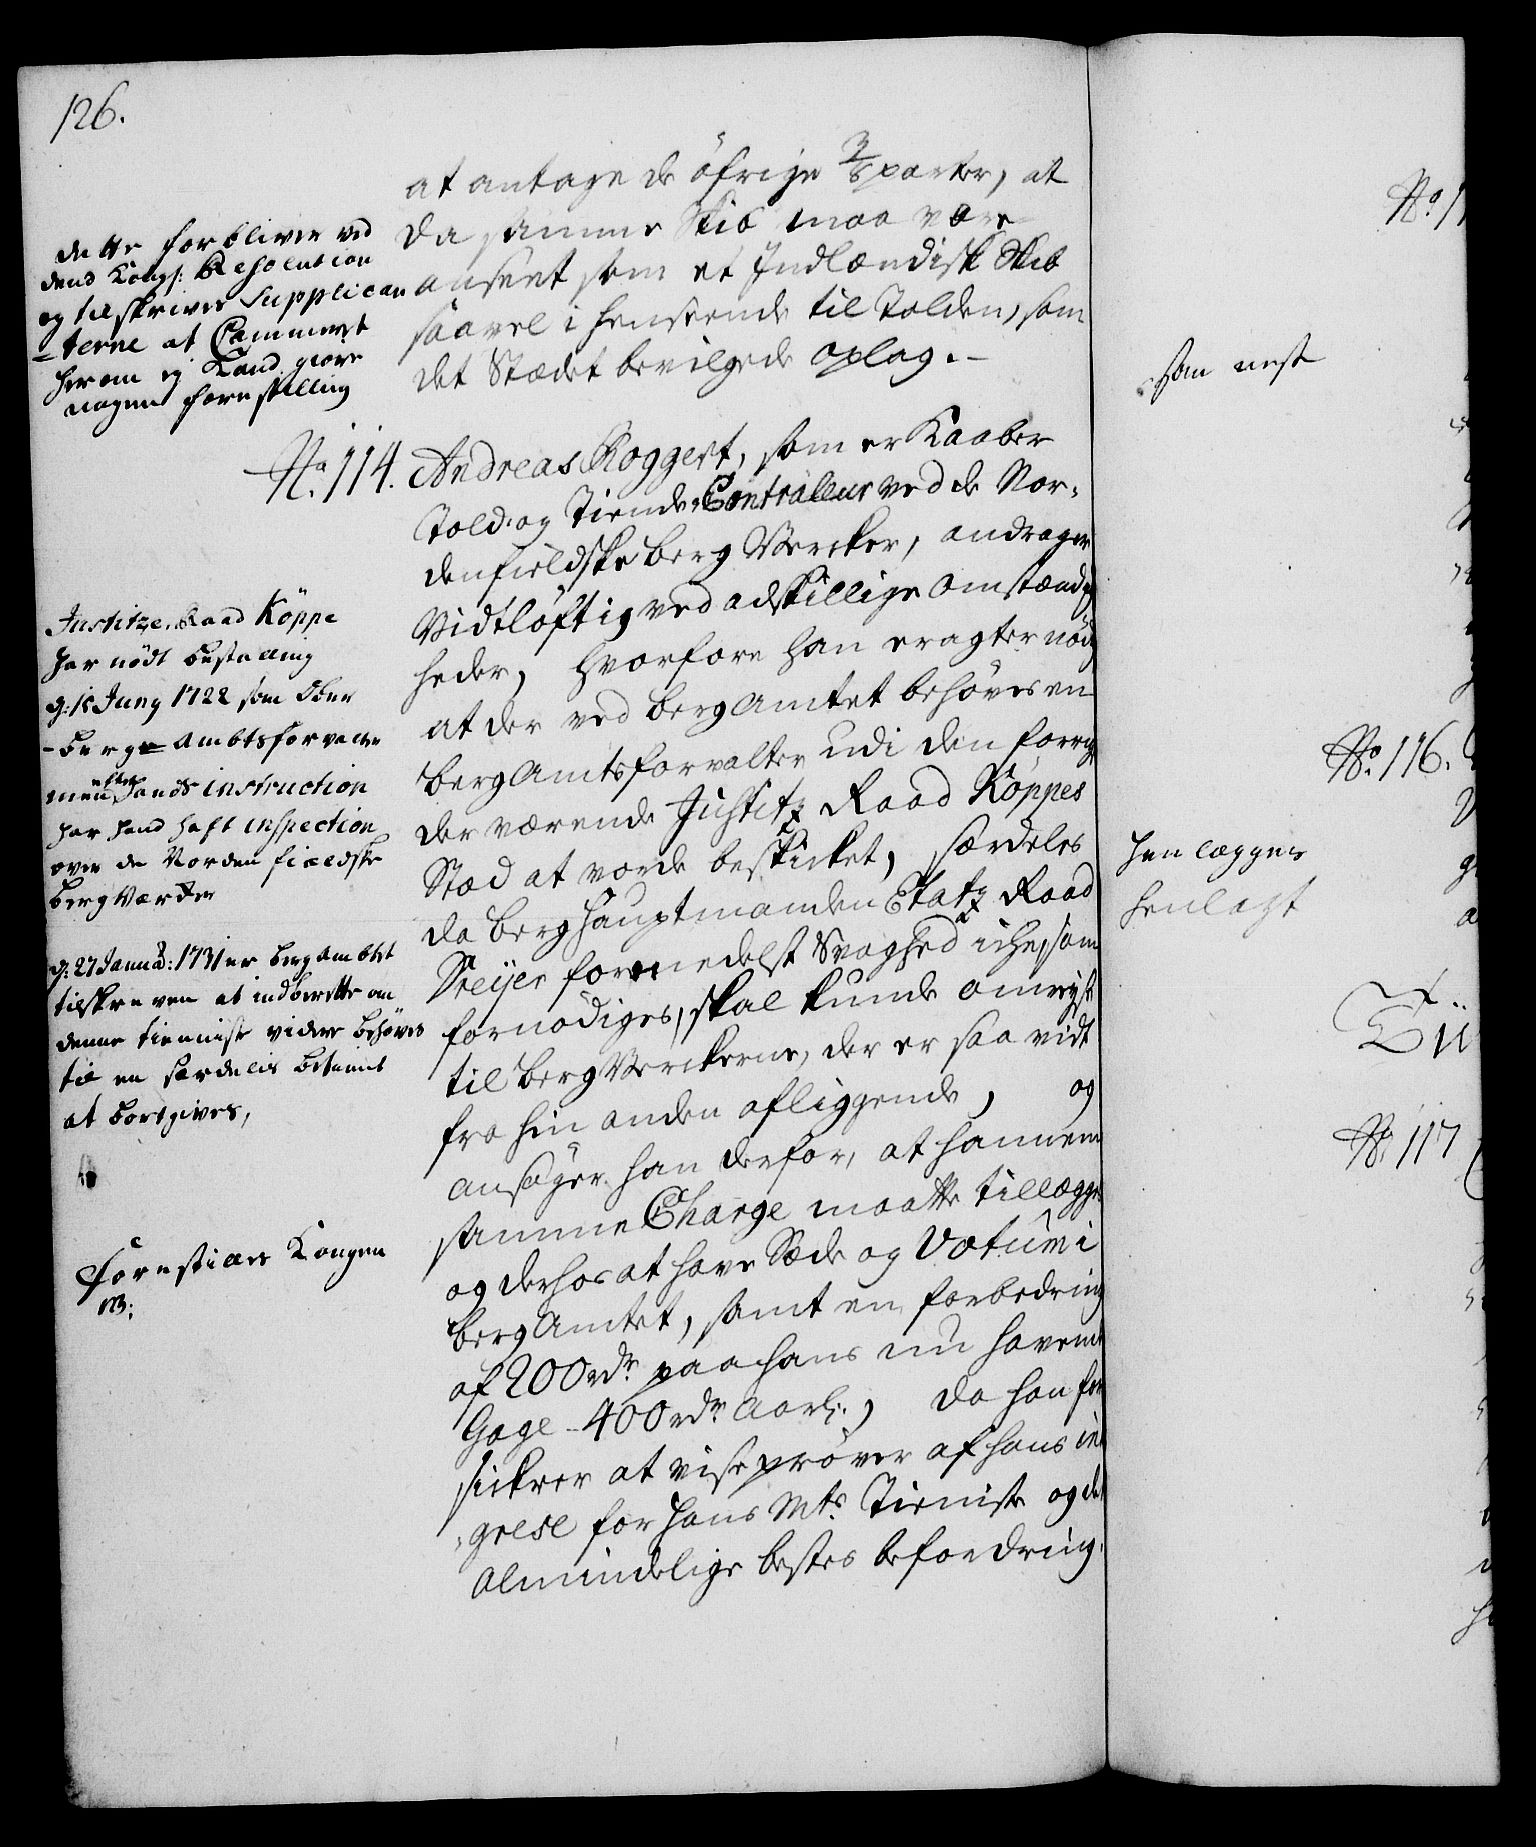 126.
at antage de öfrige 3/8 parter, at
da samme Skib maa være
anseet som et Indlændisk Skib
saavel i henseende til Tolden, som
det Stædet bevilgede oplag.-
dette forbliver ved
dend Kongl: Resolution
og tilskrives Supplican
-terne at Cammeret
herom ej Kand giøre
nogen forestilling
No. 114. Andreas Roggert, som er Kaaber
Told og Tiende-Contralleur ved de Nor-
denfieldske Berg Vercker, andrager
Vidtlöftig ved adskillige omstændig
heder, hvorfore han eragter nödig
at der ved Berg Amtet behöves en
Berg Amts forvalter udi den forrige
der værende Justitz Raad Köppes
Stæd at vorde beskicket, særdeles
da Berghauptmanden Etatz Raad
formedelst Svaghed icke, som
fornödiges, skal kunde omreyse
til Berg Verckerne, der er saa vidt
fra hin anden afliggende, og
ansöger han derfor, at hannem
samme Charge maatte tillegge
og derhos at have Sæde og Votum i
Berg Amtet, samt en forbedring
af 200 rdr paa hans nu havende
Gage - 400 rdr Aarl:, da han for
sickrer at vise pröver af hans in
-grese for Hans Mts Tieniste og det
almindelige bestes befordring.
Justitze Raad Köppe
har nödt bestalling
d: Juny 1722 som Ober
-berg Ambtsforvalter
men efter hands instruction
har hand haft inspection
over de Norden fieldske
berg Værcker
d: 27 Janua: 1731 er berg ambtet
tilskreven at indberette om
denne tienniste videre behöves
til en særdelis betient
at bortgives,
forestilles Kongen
NB:
som nest
No. 116.
henlægges
henlagt
No. 117